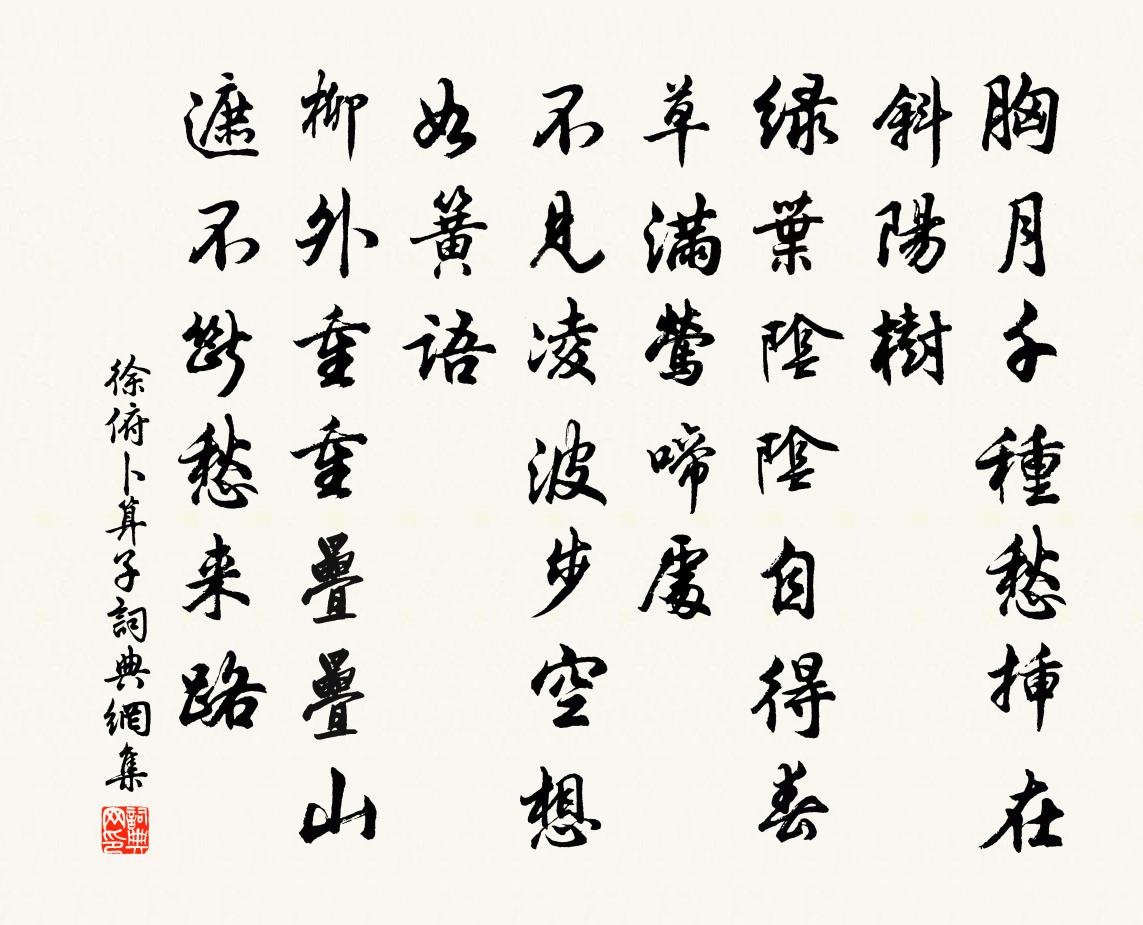 胸月千種愁挿在
斜陽樹
緑葉陰陰自得春
草滿鶯啼處
不見凌波步空想
如簧語
柳外重重疊疊山
遮不斷愁来路
徐俯卜算子詞典網集
詞典網印